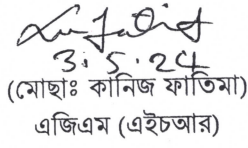 3.5.24
(মোছাঃ কানিজ ফাতিমা)
এজিএম (এইচআর)